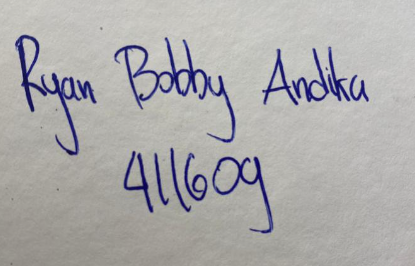 Ryan Bobby Andika
411609